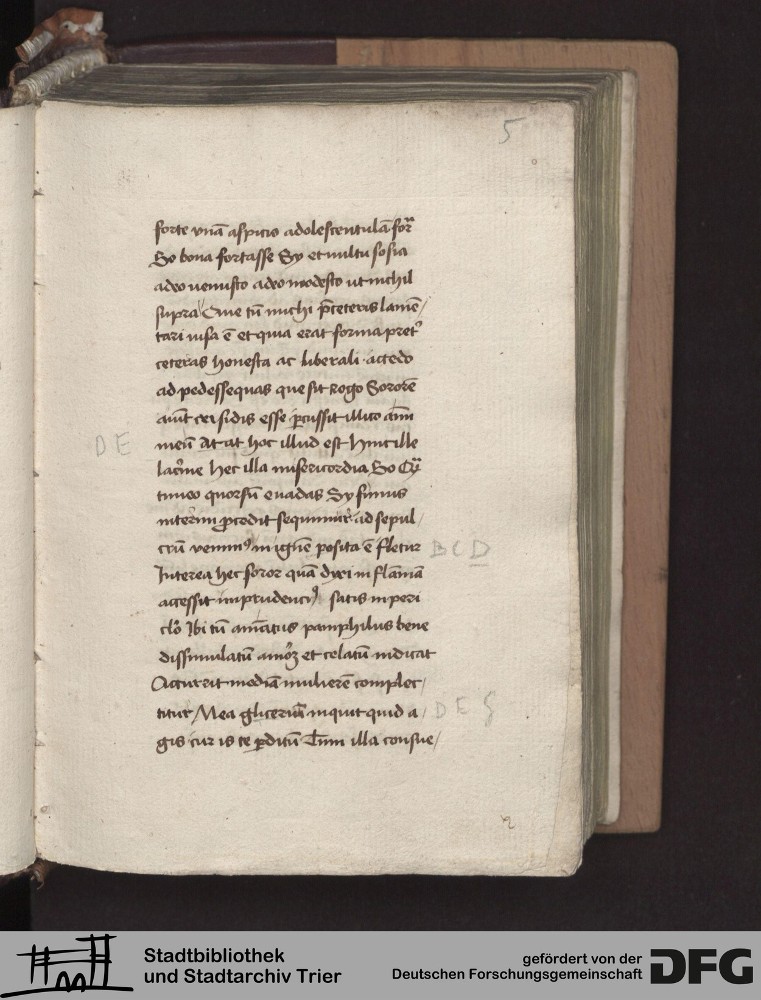 5
forte vnã aspicio adolescentulã for̃
So bona fortasse Sy et uultu sosia
adeo uenusto adeo modesto ut nichil
supra Que tũ michi p̃ ceteris lamẽ/
tari uisa ẽ et quia erat forma pret᷒
ceteras honesta ac liberali accedo
ad pedessequas que sit rogo Sororẽ
aiũt crisidis esse p̱cussit illico aĩm
meũ At at hoc illud est hinc ille
DE
lacrime hec illa misericordia So Q̃
timeo quorsũ euadas Sy funus
interim ꝓcedit sequimur ad sepul/
crũ uenimꝰ in ignẽ posita ẽ fletur
BCD
Interea hec soror quã dixi in flãmã
accessit imprudenciꝰ satis in peri
clo Ibi tũ exanimatus pamphilus bene
dissimulatũ amorẽ et celatũ indicat
Accurrit mediã mulierẽ complec/
titur Mea gliceriũ inquit quid a/
DE
gis cur is te p̱ditũ Tum illa consue/
Stadtbibliothek
und Stadtarchiv Trier
gefördert von der
Deutschen Forschungsgemeinschaft
DFG